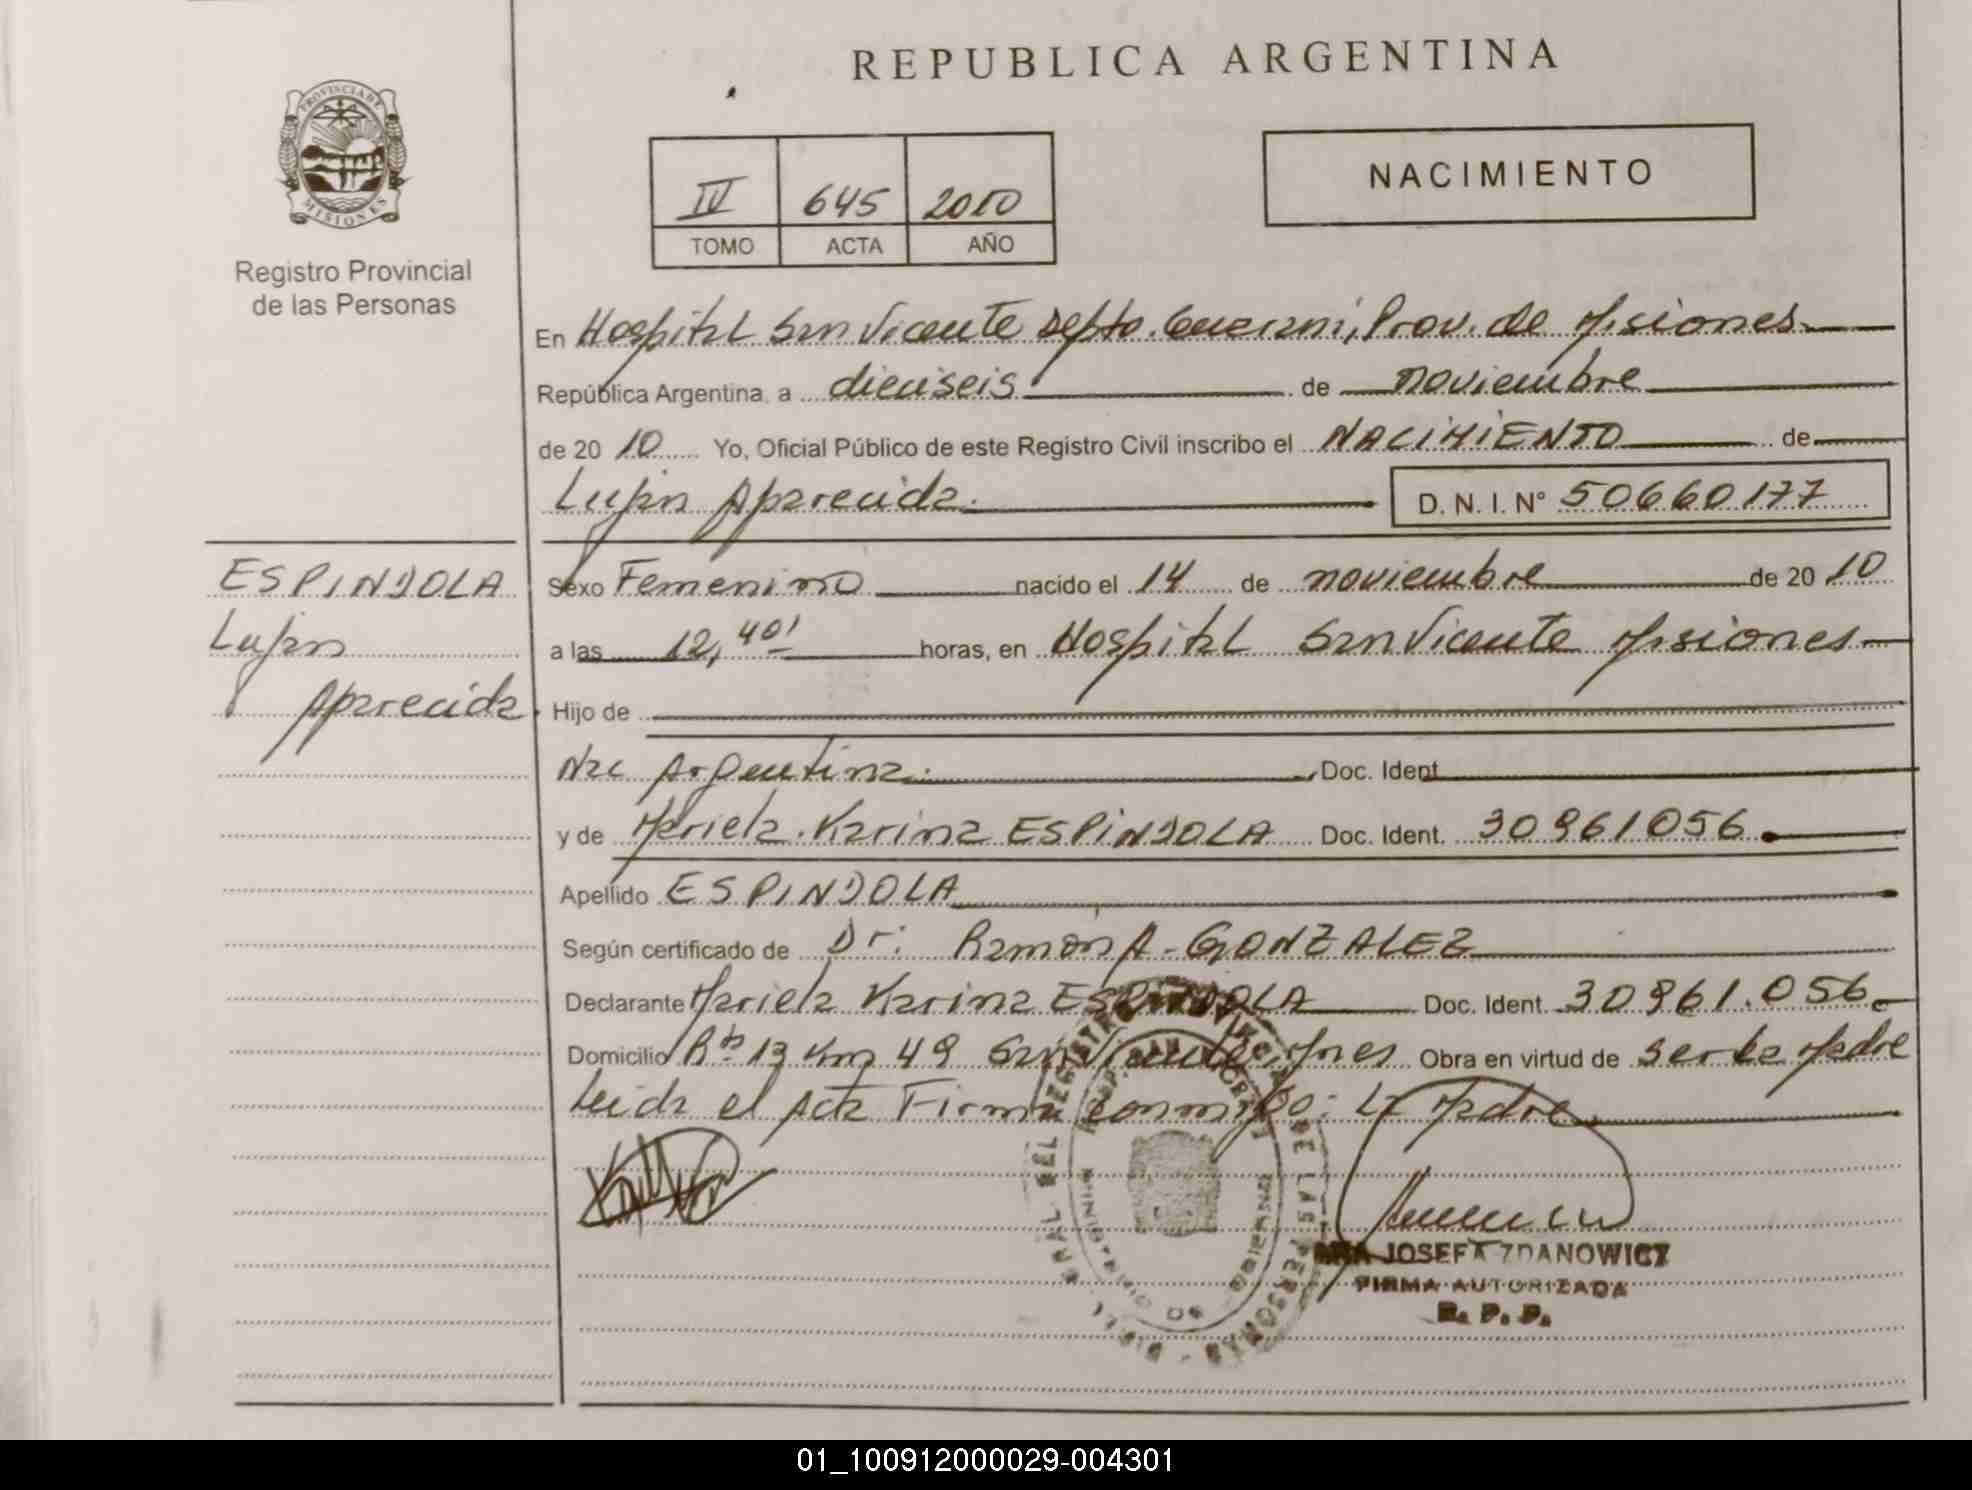 REPUBLICA ARGENTINA
PROVINCIA DE
MISIONES
Registro Provincial
de las Personas
IV 645 2010
TOMO ACTA AÑO
NACIMIENTO
En Hospital San Vicente Depto. Guarani, Prov. de Misiones
República Argentina, a dieciseis de noviembre
de 2010 Yo, Oficial Público de este Registro Civil inscribo el NACIMIENTO de
Lujan Aparecida. D. N. I. N° 50660177
ESPINDOLA
Lujan
Aparecida
Sexo Femenino nacido el 14 de noviembre de 2010
a las 12,40' horas, en Hospital San Vicente Misiones
Hijo de
Nac Argentina. Doc. Ident.
y de Mariela Karina ESPINDOLA Doc. Ident. 30961056
Apellido ESPINDOLA
Según certificado de Dr: Ramon A. GONZALEZ
Declarante Mariela Karina ESPINDOLA Doc. Ident. 30961.056
Domicilio Rta 13 Km 49 San Vicente, Mnes Obra en virtud de ser la Madre
Leida el Acta Firma conmigo: La Madre
JOSEFA ZDANOWICZ
FIRMA AUTORIZADA
R. P. P.
01_100912000029-004301